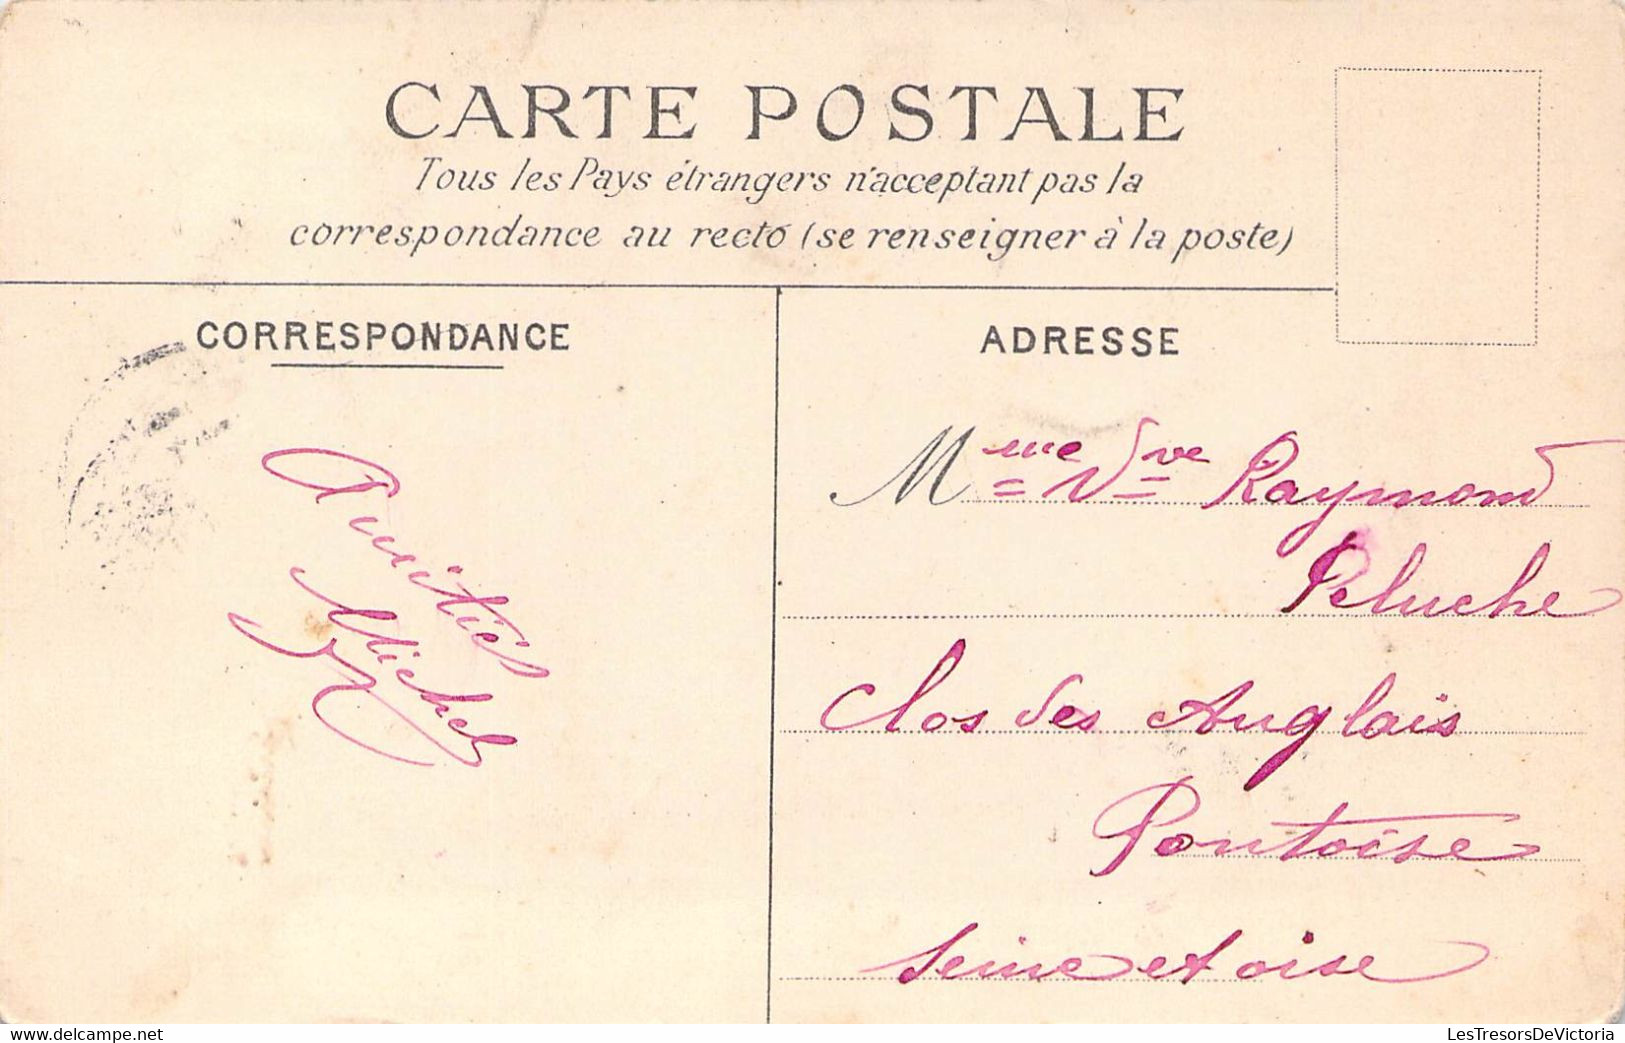 CARTE POSTALE
Tous les Pays étrangers n'acceptant pas la
correspondance au recto (se renseigner à la poste)
CORRESPONDANCE
Amitiés
Michel
ADRESSE
Mme Vve Raymond
Peluche
Clos des Anglais
Pontoise
Seine et oise
delcampe.net
LesTresorsDeVictoria